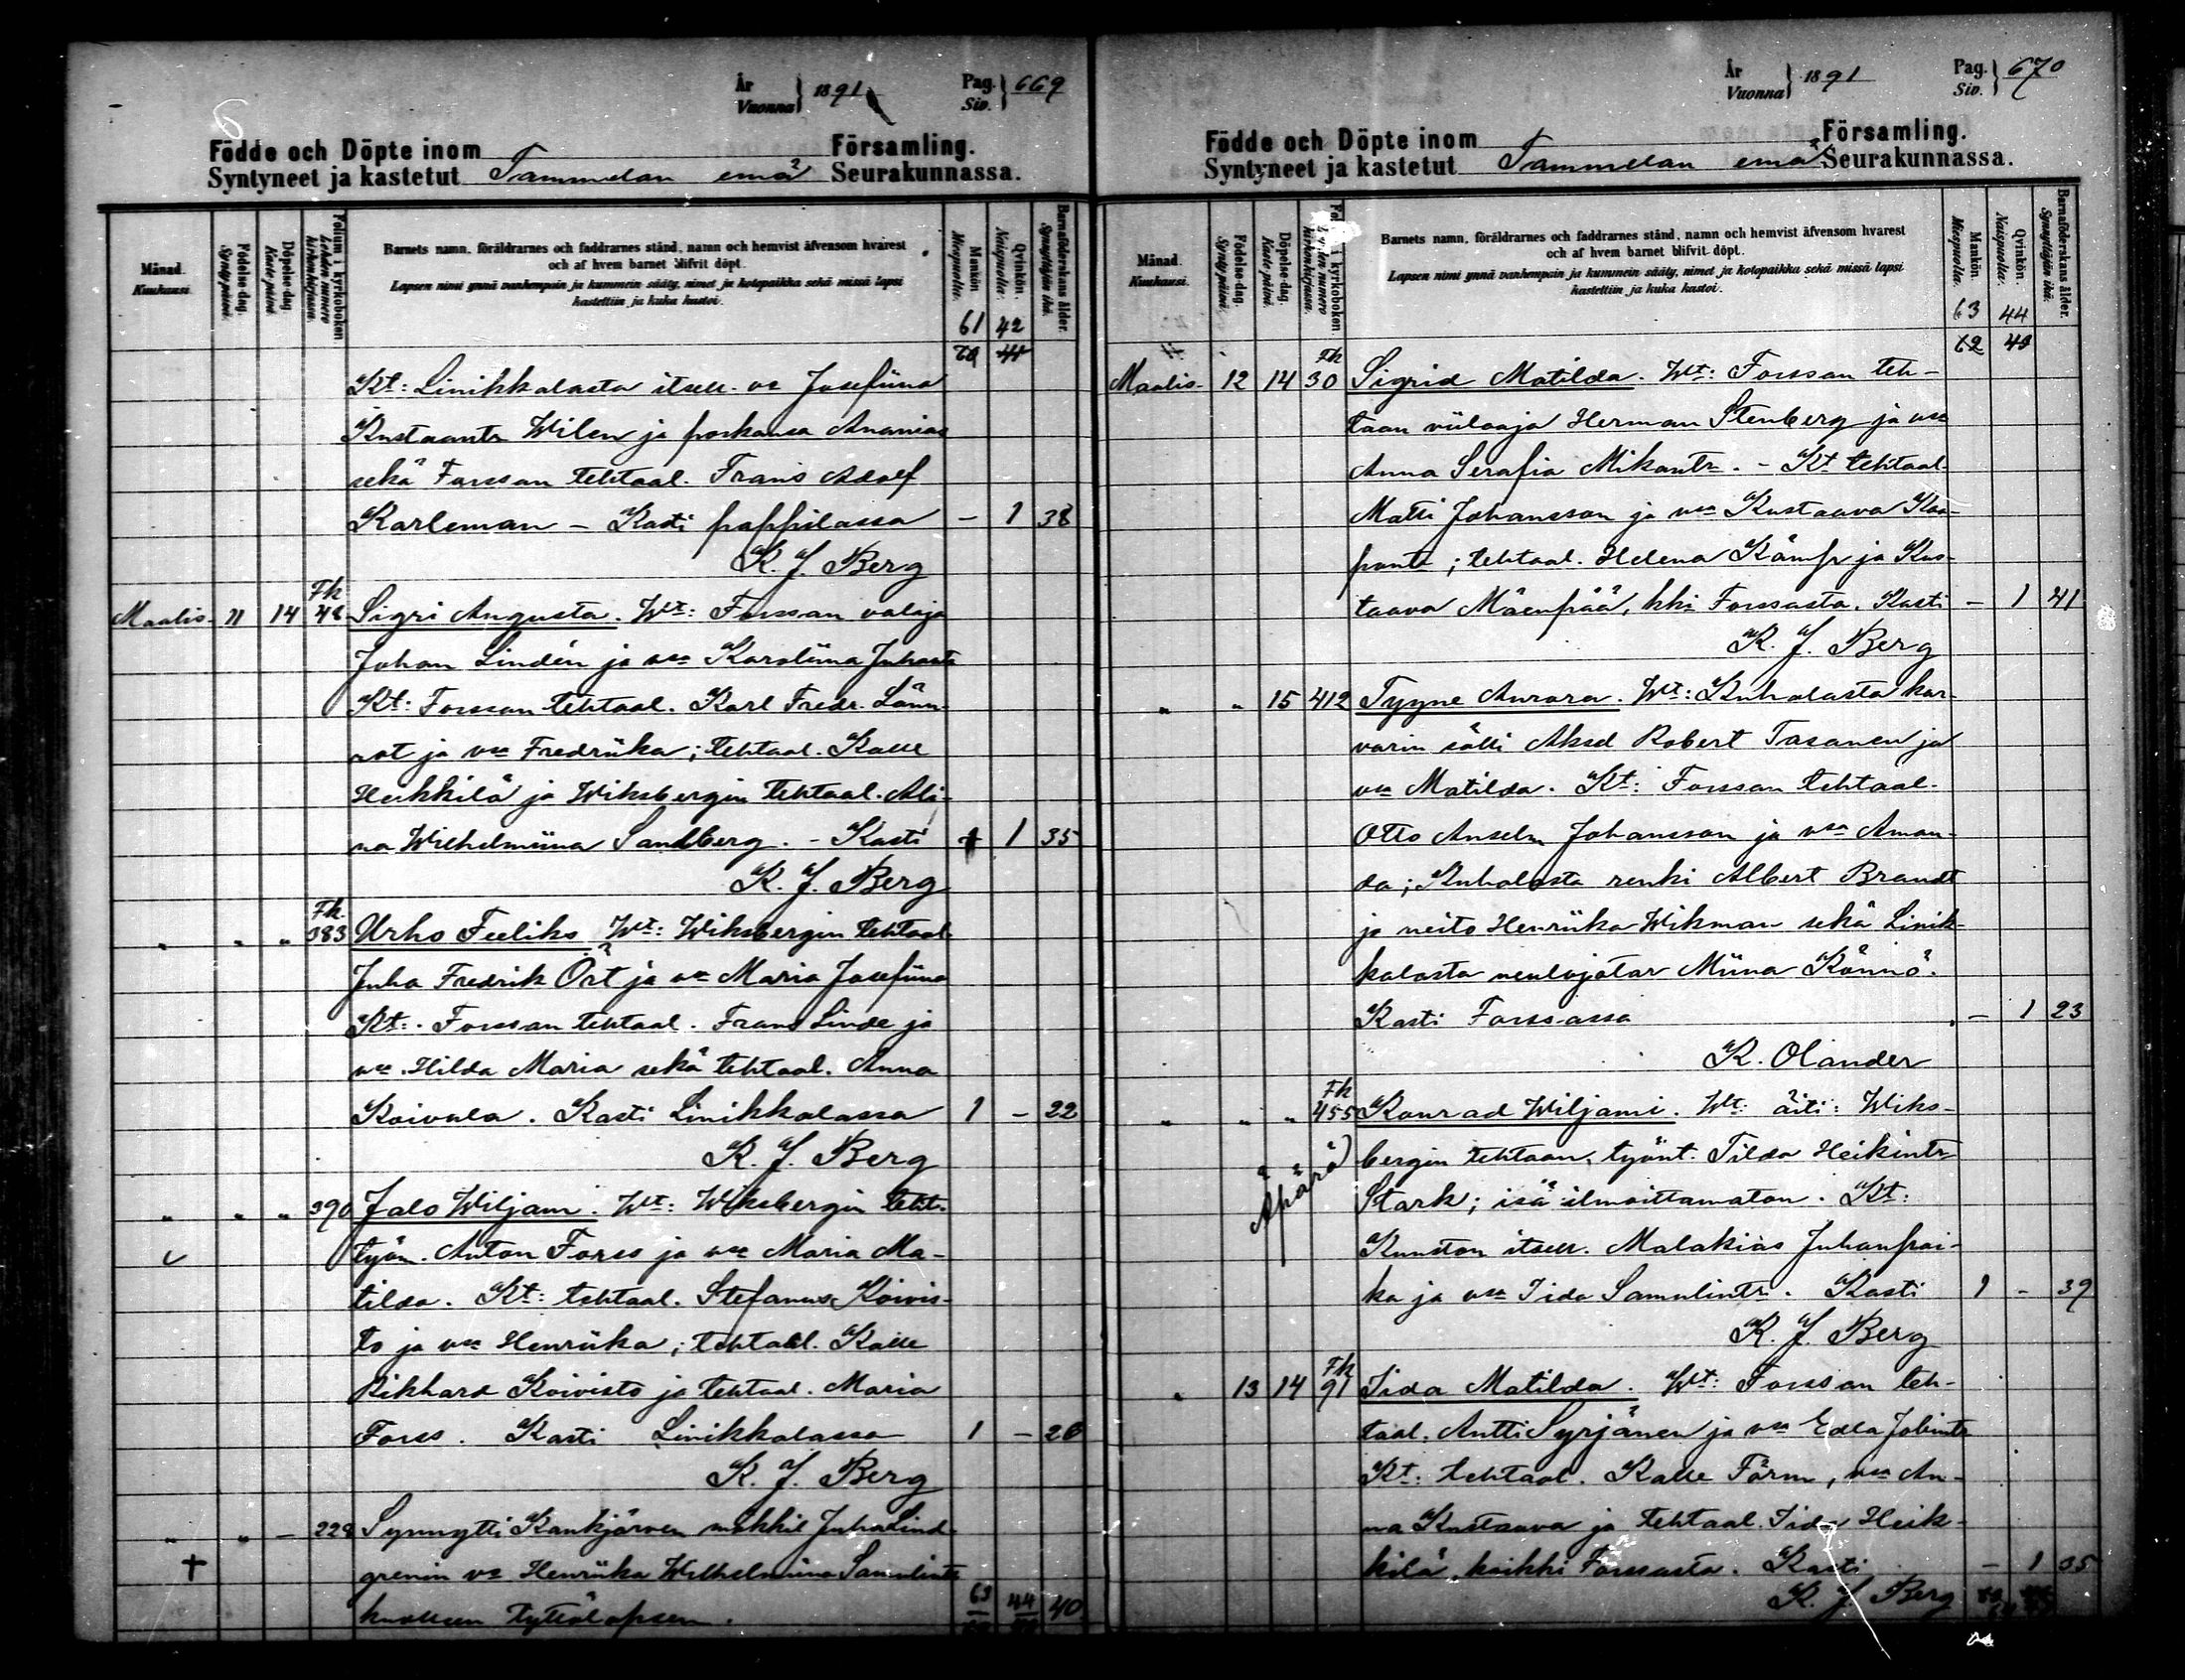 År
Vuonna } 1891
Pag.
Siv. } 669
Födde och Döpte inom Församling.
Syntyneet ja kastetut Tammelan emä Seurakunnassa.
Månad. Kuukausi.
Födelse-dag. Syntypäivä.
Döpelse-dag. Kaste-päivä.
Folium i kyrkoboken. Lehden numero kirkonkirjassa.
Barnets namn, föräldrarnes och faddrarnes stånd, namn och hemvist äfvensom hvarest
och af hvem barnet blifvit döpt.
Lapsen nimi ynnä vanhempain ja kummein sääty, nimet ja kotopaikka sekä missä lapsi
kastettiin ja kuka kastoi.
Mankön. Miespuolia.
Qvinkön. Naispuolia.
Barnaföderskans ålder. Synnyttäjän ikä.
61 42
60 41
Kt: Linikkalasta itsell. va Josefiina
Kustaantr Wilen ja poikansa Ananias
sekä Forssan tehtaal. Frans Adolf
Karleman – Kasti pappilassa – 1 38
K. J. Berg
Maalis. 11 14 Fk 48 Sigri Augusta. Wt: Forssan valaja
Johan Lindén ja vmo Karoliina Juhantr
Kt: Forssan tehtaal. Karl Fredr. Länn-
rot ja vmo Fredriika; tehtaal. Kalle
Heikkilä ja Wiksbergin tehtaal. Ali-
na Wilhelmiina Sandberg. – Kasti 1 35
K. J. Berg
" " " Fk. 383 Urho Feeliks Wt: Wiksbergin tehtaal.
Juha Fredrik Ört ja vmo Maria Josefiina
Kt: Forssan tehtaal. Frans Linde ja
vmo Hilda Maria sekä tehtaal. Anna
Koivula. Kasti Linikkalassa 1 – 22
K. J. Berg
" " " 390 Jalo Wiljam. Wt: Wiksbergin teht.
työm. Anton Forss ja vmo Maria Ma-
tilda. Kt: tehtaal. Stefanus Koivis-
to ja vmo Henriika; tehtaal. Kalle
Rikhard Koivisto ja tehtaal. Maria
Forss. Kasti Linikkalassa 1 – 26
K. J. Berg
" " – 228 Synnytti Kaukjärven mökkil Juha Lind-
† grenin vo Henriika Wilhelmiina Samulintr
kuolleen tyttölapsen. 63 44 40
År
Vuonna } 1891
Pag.
Siv. } 670
Födde och Döpte inom Församling.
Syntyneet ja kastetut Tammelan emä Seurakunnassa.
Månad. Kuukausi.
Födelse-dag. Syntypäivä.
Döpelse-dag. Kaste-päivä.
i kyrkoboken. numero kirkonkirjassa.
Barnets namn, föräldrarnes och faddrarnes stånd, namn och hemvist äfvensom hvarest
och af hvem barnet blifvit döpt.
Lapsen nimi ynnä vanhempain ja kummein sääty, nimet ja kotopaikka sekä missä lapsi
kastettiin ja kuka kastoi.
Mankön. Miespuolia.
Qvinkön. Naispuolia.
Barnaföderskans ålder. Synnyttäjän ikä.
63 44
62 43
Maalis. 12 14 Fk 30 Sigrid Matilda. Wt: Forssan teh-
taan viilaaja Herman Stenberg ja vmo
Anna Serafia Mikontr. – Kt tehtaal.
Matti Johansson ja vmo Kustaava Kaa-
pontr; tehtaal. Helena Kämp ja Kus-
taava Mäenpää, kki Forssasta. Kasti – 1 41
K. J. Berg
" " 15 412 Tyyne Aurora. Wt: Kuhalasta kar-
varin sälli Aksel Robert Tasanen ja
vmo Matilda. Kt: Forssan tehtaal.
Otto Anselm Johansson ja vmo Aman-
da; Kuhalasta renki Albert Brandt
ja neito Henriika Wikman sekä Linik-
kalasta neulojatar Miina Könnö.
Kasti Forssassa – 1 23
K. Olander
" " " Fk 455 Konrad Wiljami. Wt: äiti: Wiks-
Äpärä) bergin tehtaan työnt. Tilda Heikintr
Stark; isä ilmoittamaton. Kt:
Kunston itsell. Malakias Juhanpoi-
ka ja vmo Iida Samulintr. Kasti 1 – 39
K. J. Berg
" 13 14 Fk 91 Iida Matilda. Wt: Forssan teh-
taal. Antti Syrjänen ja vmo Edla Jobintr
Kt: tehtaal. Kalle Förm, vmo An-
na Kustaava ja tehtaal. Iida Heik-
kilä, kaikki Forssasta. Kasti – 1 35
K. J. Berg